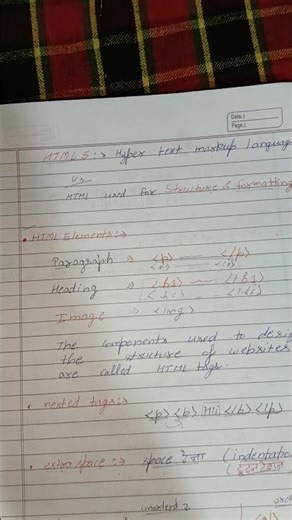 Date :
Page :
HTML 5 :→ Hyper text markup Languag
VS
HTML used for Structure & formatting
• HTML Elements :→
Paragraph → <p> — </p>
Heading → <h1> — </h1>
Image → <img>
The Components used to desig
the structure of websites
are called HTML tags.
• nested tags :→
<p> <b> </b> </p>
• extra space :→ space देना (indentatio